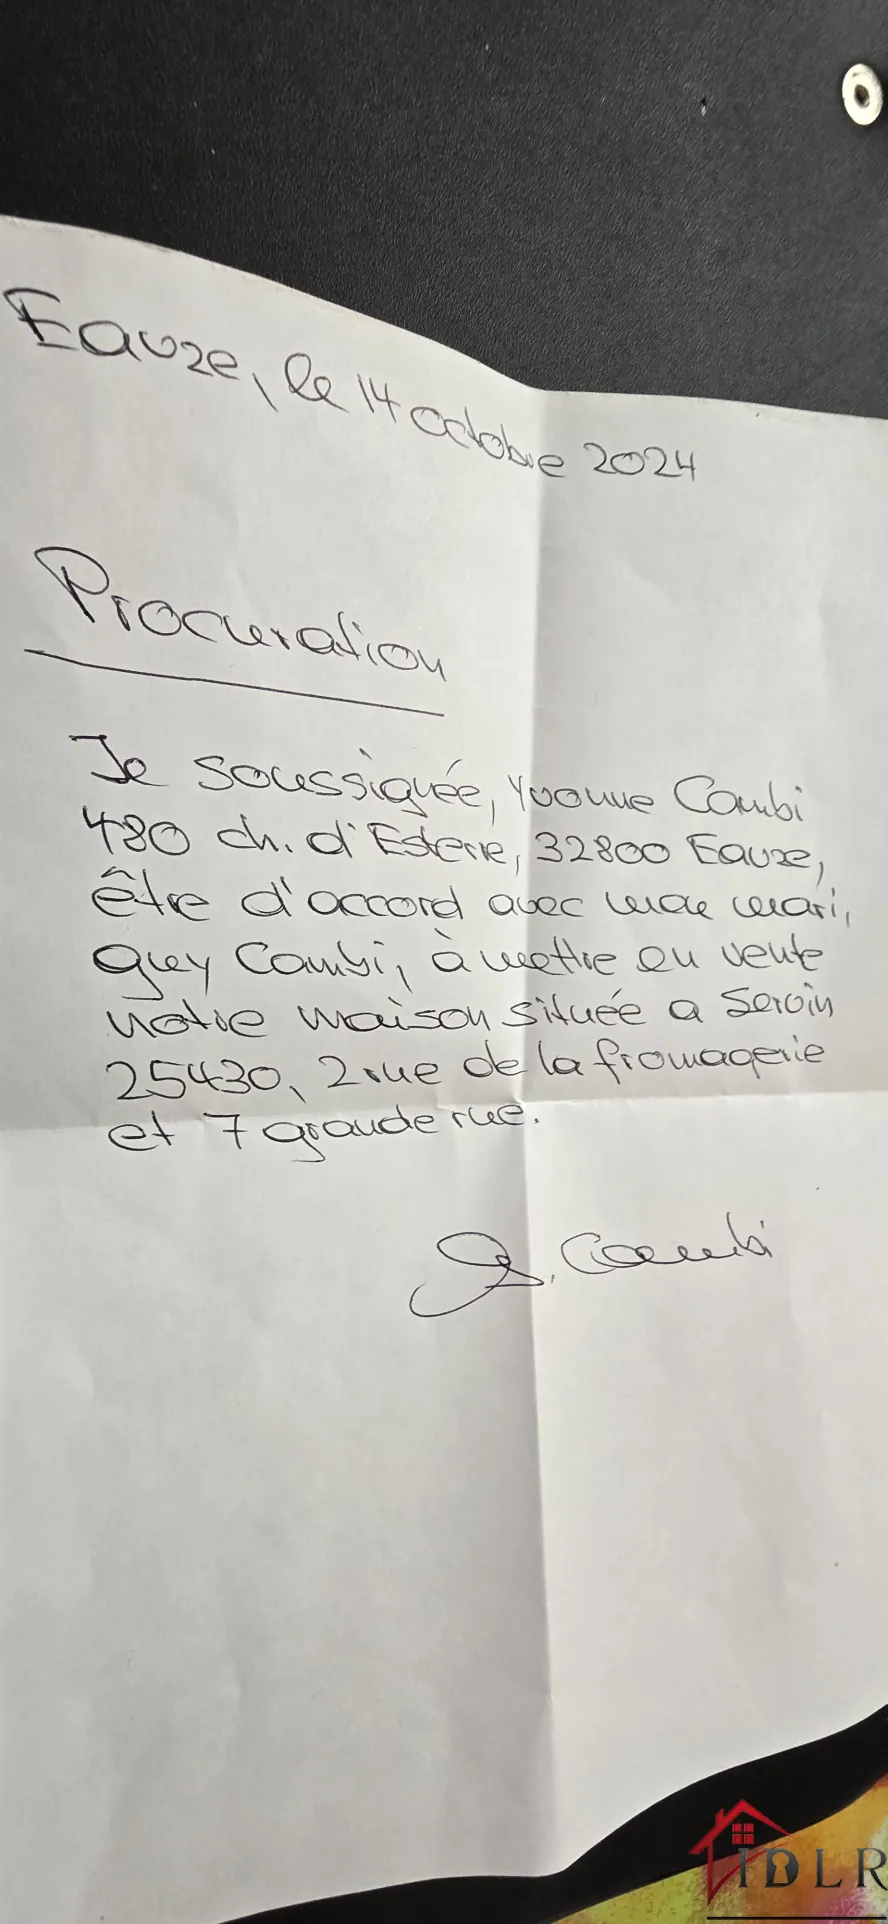 Eauze, le 14 octobre 2024
Procuration
Je soussignée, Yvonne Combi
480 ch. d'Esterre, 32800 Eauze,
être d'accord avec mon mari,
Guy Combi, à mettre en vente
notre maison située a Servin
25430, 2 rue de la fromagerie
et 7 grande rue.
Y. Combi
IDLR